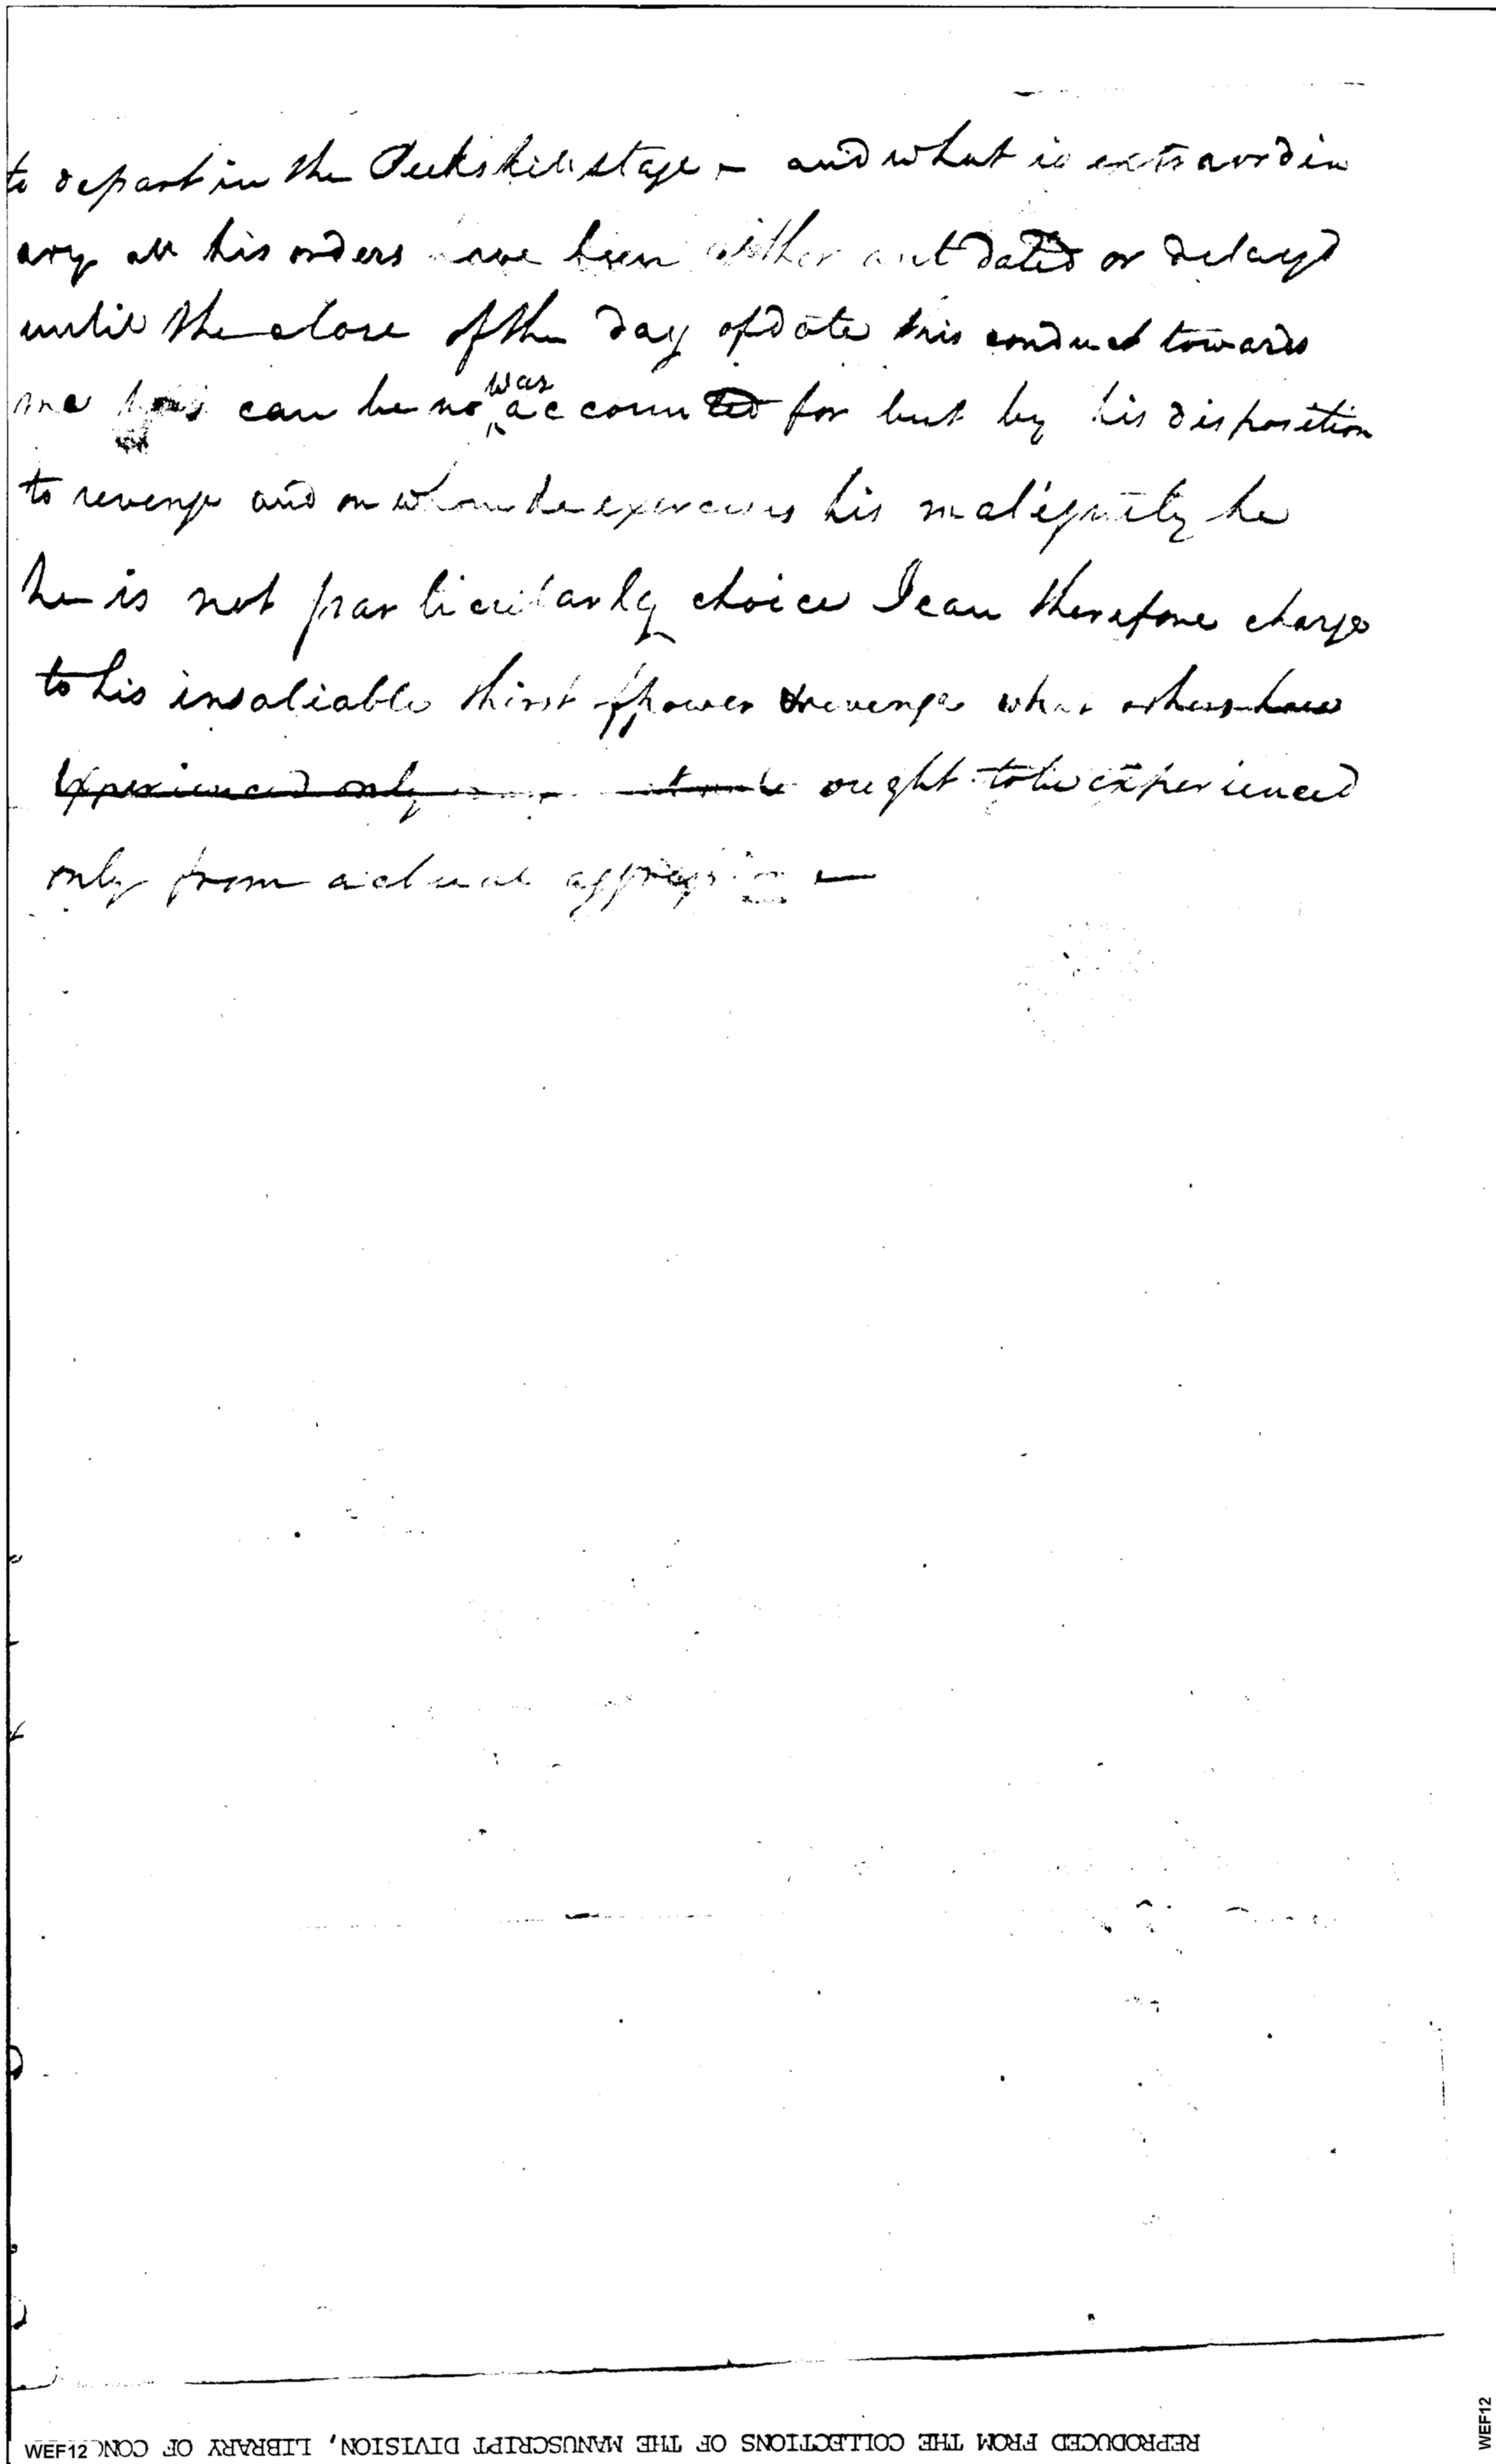 to depart in the Peekskill stage – and what is extraordin
ary all his orders have been either antdated or delayd
until the close of the day of date his conduct towards
me can be no was accounted for but by his disposition
to revenge and on whom he exercises his malignity he
he is not particularly choice I can therefore charge
to his insatiable thirst of power & revenge what others have
experienced only ought to be experienced
only from actual aggression —
REPRODUCED FROM THE COLLECTIONS OF THE MANUSCRIPT DIVISION, LIBRARY OF CONG
WEF12
WEF12